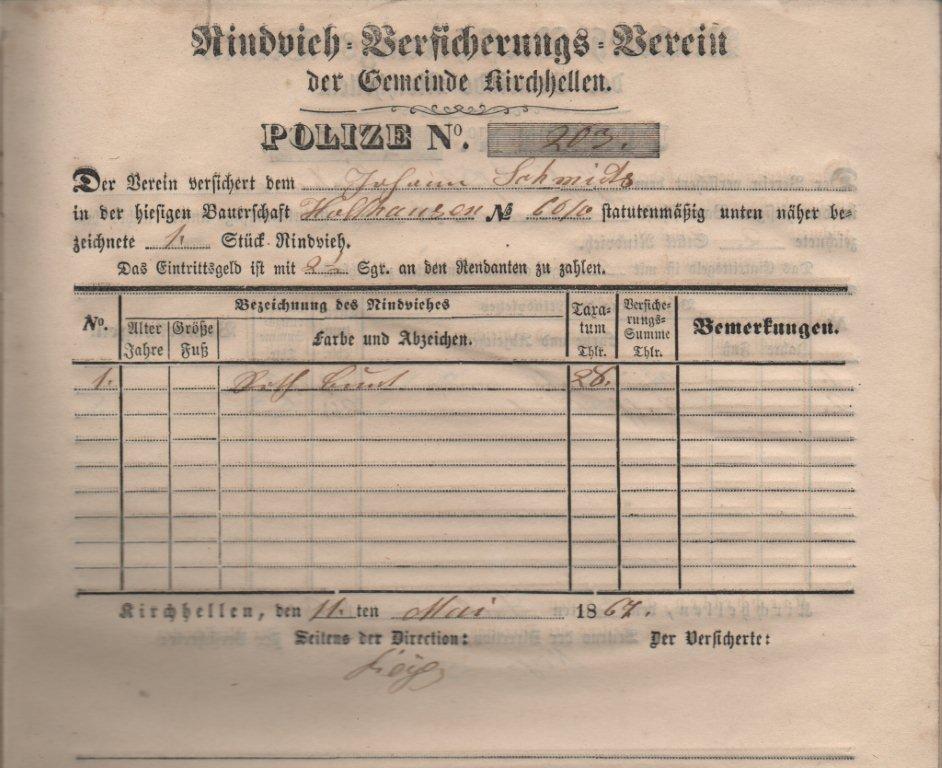 Rindvieh-Versicherungs-Verein
der Gemeinde Kirchhellen.
POLIZE No. 203.
Der Verein versichert dem Johann Schmidt
in der hiesigen Bauerschaft № statutenmäßig unten näher be-
zeichnete 1. Stück Rindvieh.
Das Eintrittsgeld ist mit Sgr. an den Rendanten zu zahlen.
No. Bezeichnung des Rindviehes Taxa-tum Thlr. Versiche-rungs-Summe Thlr. Bemerkungen.
Alter Jahre Größe Fuß Farbe und Abzeichen.
1. Roth bunt 26.
Kirchhellen, den 11. ten Mai 1867.
Seitens der Direction: Der Versicherte: